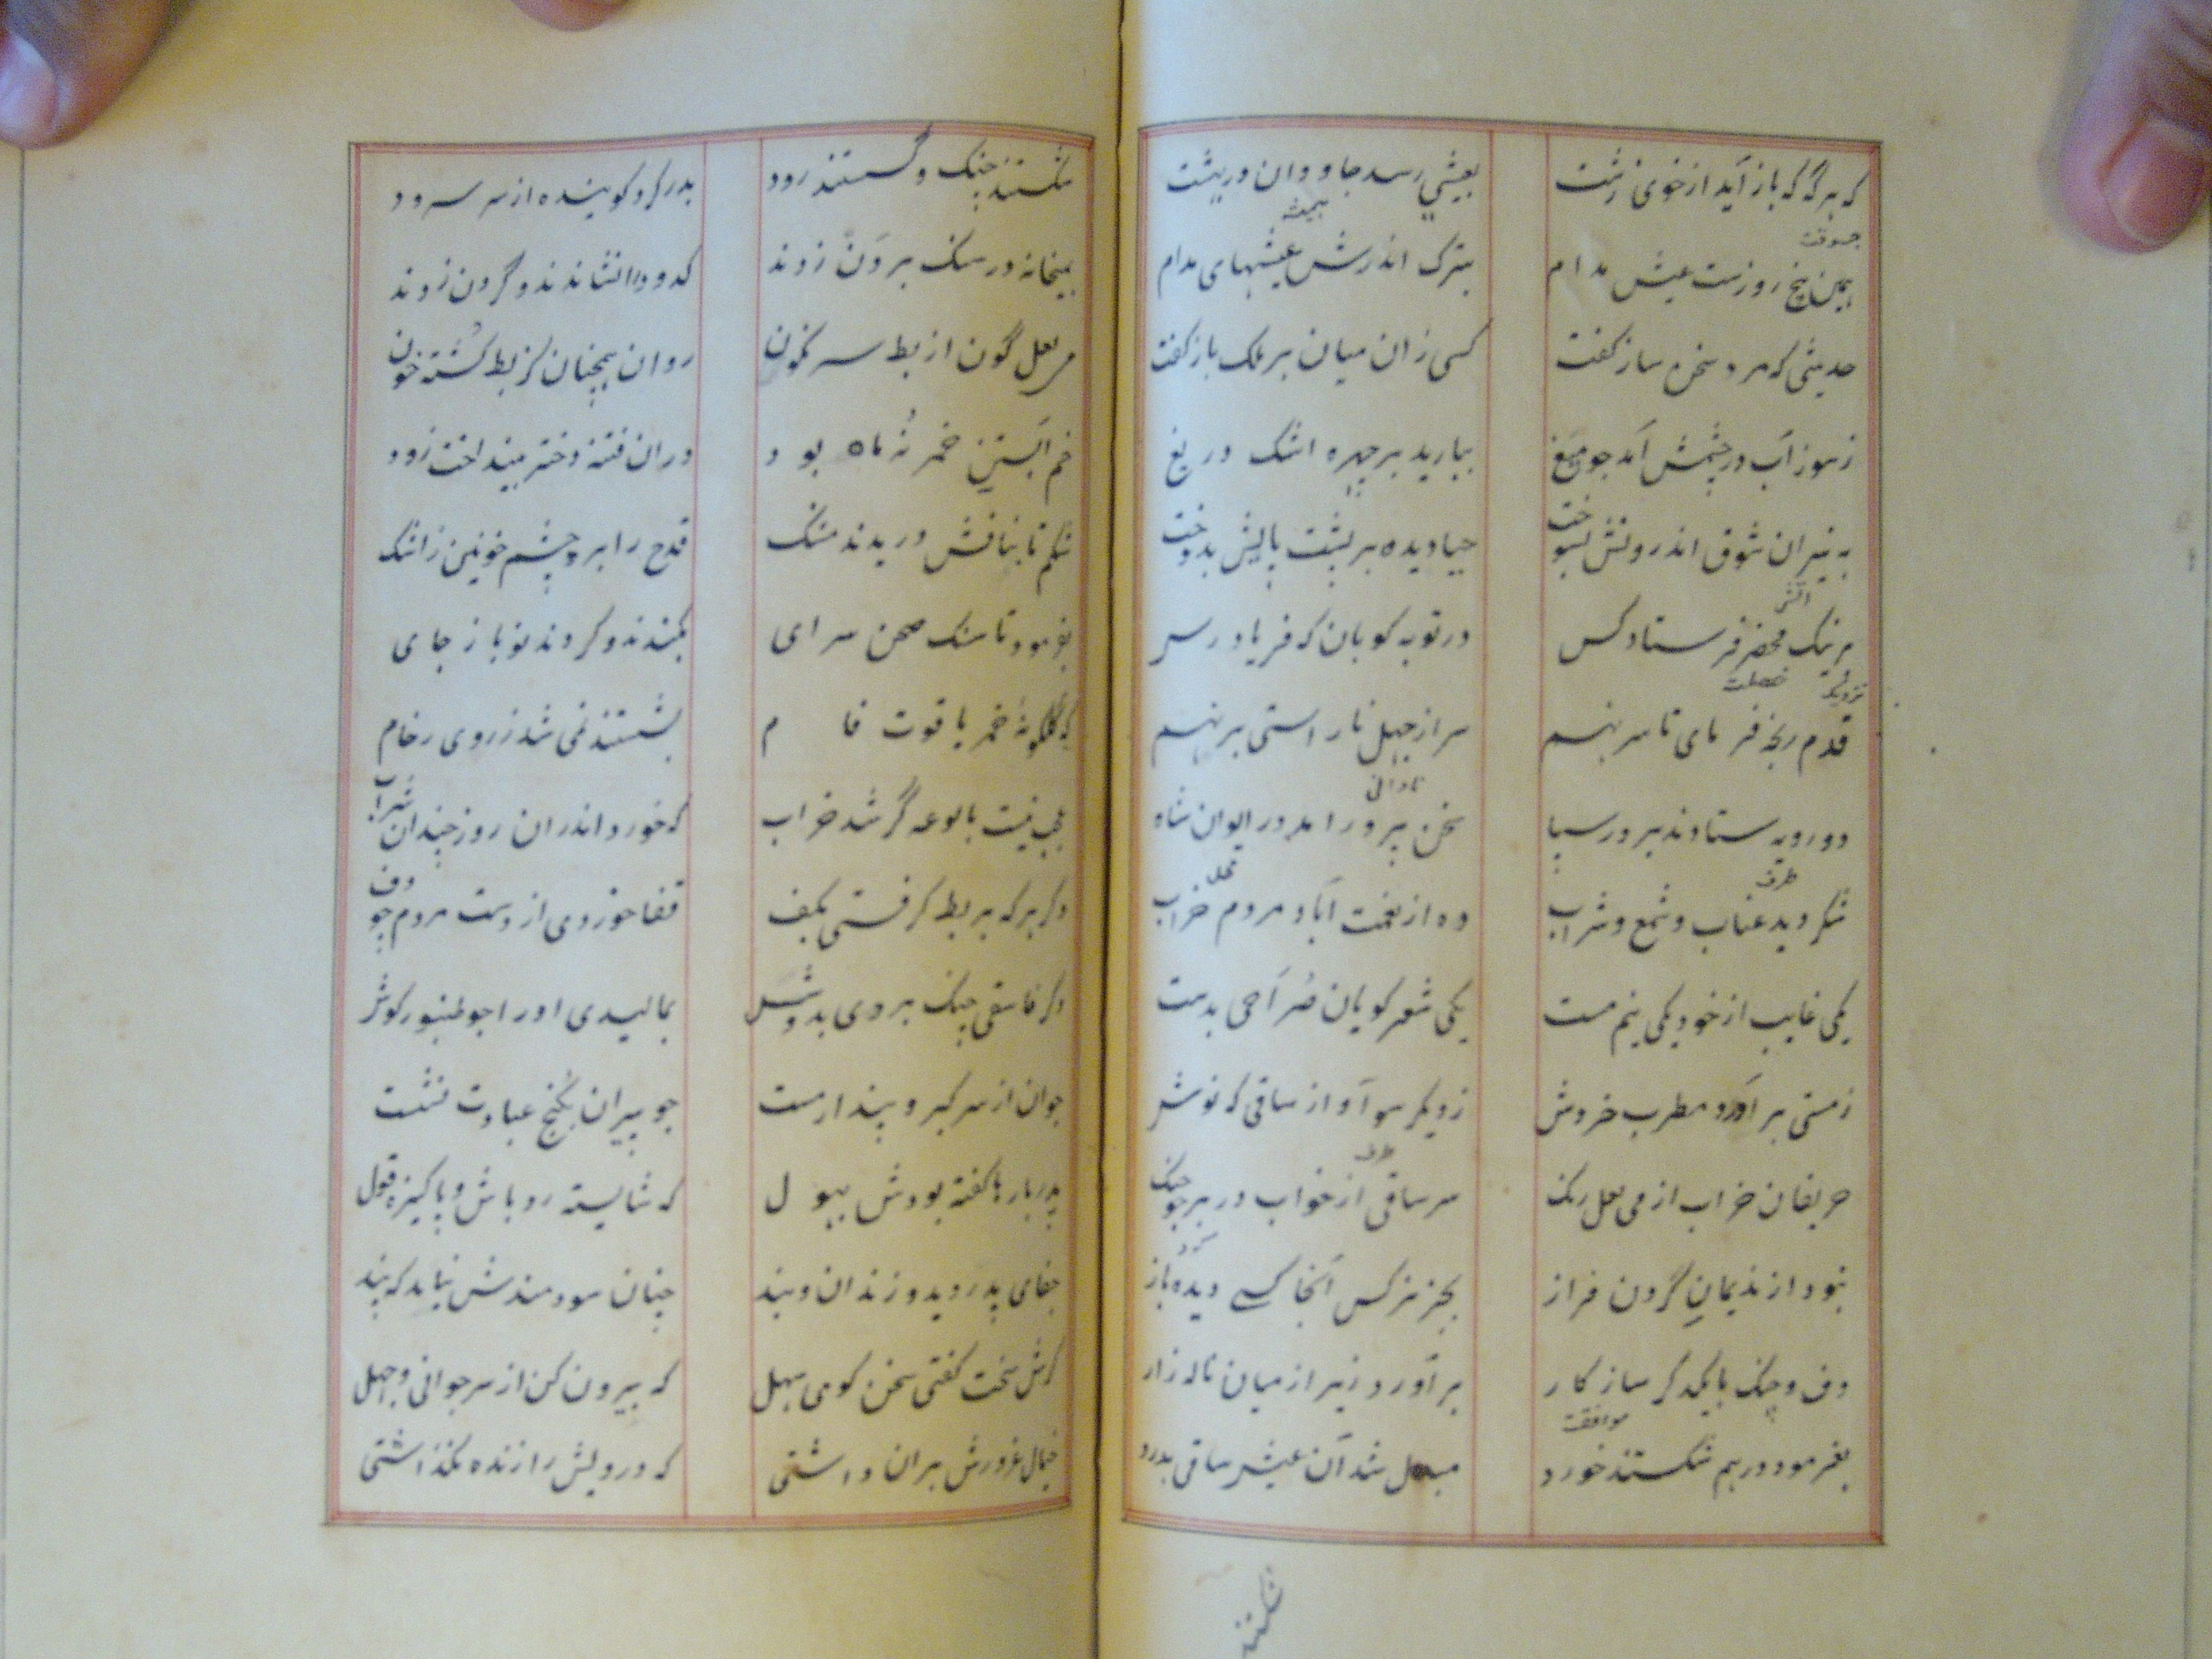 که هر گه که باز آید از خوی زشت بعیشی رسد جاودان در بهشت
همیشه
همین پنج روزست عیش مدام بترک اندرش عیشهای مدام
حدیثی که مرد سخن ساز گفت کسی زان میان بر ملک باز گفت
ز سوز آب در چشمش آمد جو میغ ببارید بر چهره اشک دریغ
به نیران شوق اندرونش بسوخت حیا دیده بر پشت پایش بدوخت
آتش
بر نیک محضر فرستاد کس در توبه کوبان که فریاد رس
نزدیک خصلت
قدم رنجه فرمای تا سر نهم سر از جهل ناراستی بر نهم
نادانی
دورویه ستادند بر در سپاه سخن پرور آمد در ایوان شاه
طرف
شکر دید عناب و شمع و شراب ده از نعمت آباد مردم خراب
یکی غایب از خود یکی نیم مست یکی شعر گویان صراحی بدست
ز مستی بر آورد مطرب خروش ز دیگر سو آواز ساقی که نوش
طرف
حریفان خراب از می لعل رنک سر ساقی از خواب در بر جو جنک
نبود از ندیمان گردن فراز بجز نرکس آنجا کسی دیده باز
دف و چنک با یکدگر سازکار بر آورد زیر از میان ناله زار
موافقت
بفرمود و درهم شکستند خورد مبدل شد آن عیش ساقی بدرد
شکستند
شکستند چنک و گسستند رود بدر کرد کوینده از سر سرود
بمیخانه در سنک بر دن زدند کدو را نشاندند و گردن زدند
می لعل گون از بط سرنکون روان همچنان کز بط کشته خون
خم آبستن خمر نه ماه بود دران فتنه دختر بینداخت زود
شکم تا بنافش دریدند مشک قدح را برو چشم خونین ز اشک
بفرمود تا سنک صحن سرای بکندند و کردند نو باز جای
که گلگونه خمر یاقوت فام بشستند نمی شد ز روی رخام
عجب نیست بالوعه گر شد خراب که خورد اندران روز چندان شراب
دگر هر که بربط کرفتی بکف قفا خوردی از دست مردم چو دف
وگر فاسقی چنک بردی بدوش بمالیدی اورا جو طنبور کوش
جوان از سر کبر و پندار مست جو پیران بکنج عبادت نشست
پدر بارها گفته بودش بهول که شایسته رو باش و پاکیزه قول
جفای پدر دید و زندان و بند چنان سودمندش نیاید که پند
کرش سخت گفتی سخن کوی سهل که بیرون کن از سر جوانی و جهل
خیال غرورش بران داشتی که درویش را زنده نگذاشتی